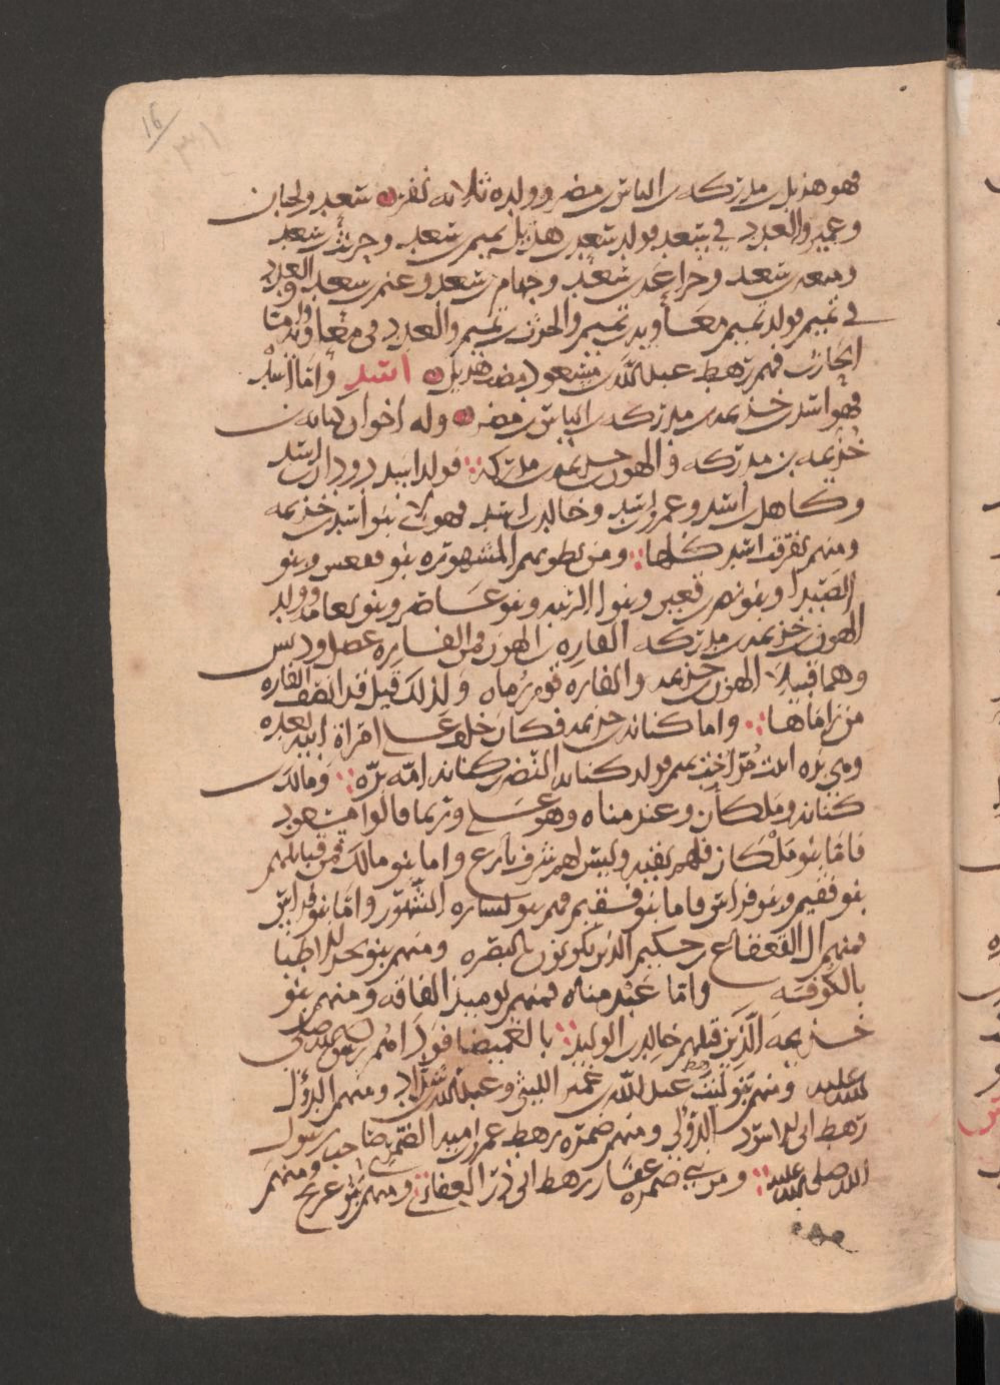 16
فهو هذيل بن مدركه بن الياس بن مضر وولده ثلاثه نفر سعد ولحيان
وعمير والعدد في سعد فولد سعد بن هذيل تميم بن سعد وحريث بن سعد
ومنعه بن سعد وخزاعه بن سعد وجهام بن سعد وغنم بن سعد والعدد
في تميم فولد تميم معاويه بن تميم والحرث بن تميم والعدد في معاويه
الحارث فهم رهط عبد الله بن مسعود هذيل اسد واما اسد
فهو اسد بن خذيمه بن مدركه بن الياس بن مضر وله اخوان كنانه بن
خذيمه بن مدركه والهون بن خذيمه بن مدركه فولد اسد دودان بن اسد
وكاهل بن اسد وعمرو بن اسد وخالد بن اسد فهولاء بنو اسد بن خذيمه
ومنهم تفرقت اسد كلها ومن بطونهم المشهوره بنو فقعس وبنو
الصيدا وبنو نصر بن قعين وبنو الزنيه وبنو غاضره وبنو نعامه وولد
الهون بن خذيمه بن مدركه القاره بن الهون ومن القاره عضل وديس
وهما قبيلا الهون بن خذيمه والقاره قوم رماه ولذلك قيل قد انصف القاره
من راماها واما كنانه بن خذيمه فكان خلف على امراة ابيه بعده
وهي بره ابنت مر اخت تميم فولد كنانه النضر بن كنانه امه بره ومالك بن
كنانه وملكان وعبد مناه وهو علي وربما قالوا مسعود
فاما بنو ملكان فلهم بقيه وليس لهم شرف بارع واما بنو مالك فمن قبائلهم
بنو فقيم وبنو فراس فاما بنو فقيم فهم بنو نساه الشهور واما بنو فراس
فمنهم ال القعقاع بن حكيم الذين يكونون بالبصره ومنهم بنو بحر الاطبا
بالكوفه واما عبد مناه فمنهم ومنهم بنو
خذيمه الذين قتلهم خالد بن الوليد بالغميصا فوداهم رسول الله صلى
الله عليه ومنهم بنو ليث رهط عبد الله بن عمير الليثي وعبد الله بن شداد ومنهم الدؤل
رهط ابي الاسود الدؤلي ومنهم ضمره رهط عمرو بن اميه الضمري صاحب رسول
الله صلى الله عليه ومن بني ضمره غفار رهط ابي ذر الغفاري ومنهم بنو عريج ومنهم